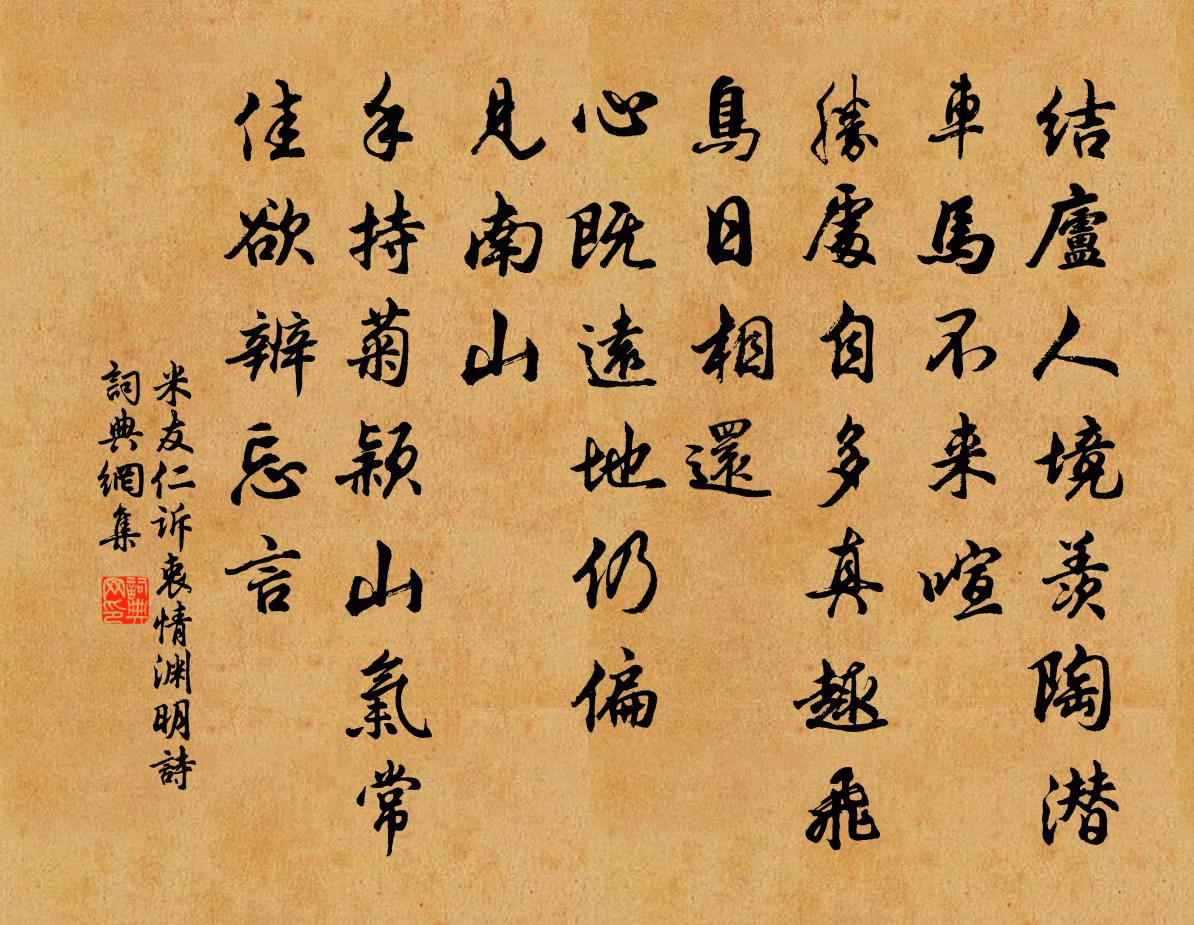 结廬人境羨陶潜
車馬不来喧
勝處自多真趣飛
鳥日相還
心既遠地仍偏
見南山
手持菊穎山氣常
佳欲辨忘言
米友仁诉衷情渊明詩
詞典網集
詞典网印